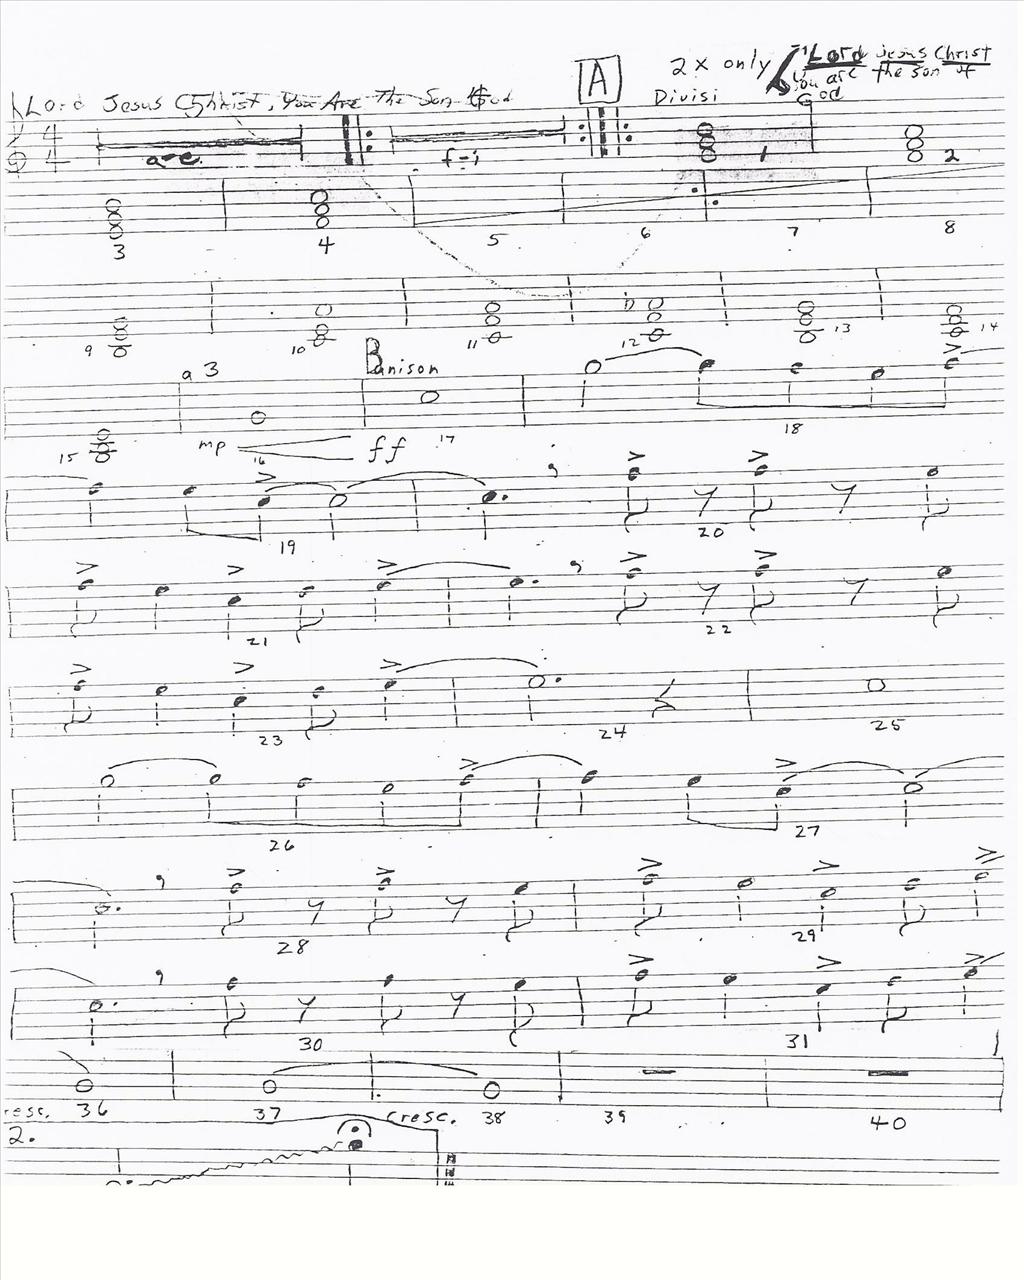 2 x only Lord Jesus Christ
A you are the son of
Lord Jesus Christ, You Are The Son God Divisi God
4
4 a-e f-i 1 2
3 4 5 6 7 8
9 10 11 12 13 14
a 3 Bunison
15 mp 16 ff 17 18
19 20
21 22
23 24 25
26 27
28 29
30 31
resc. 36 37 cresc. 38 39 40
2.